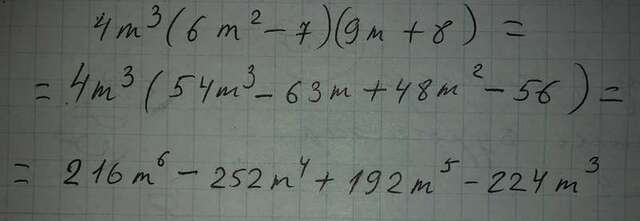 4m³(6m²-7)(9m+8) =
= 4m³(54m³-63m+48m²-56) =
= 216m⁶-252m⁴+192m⁵-224m³